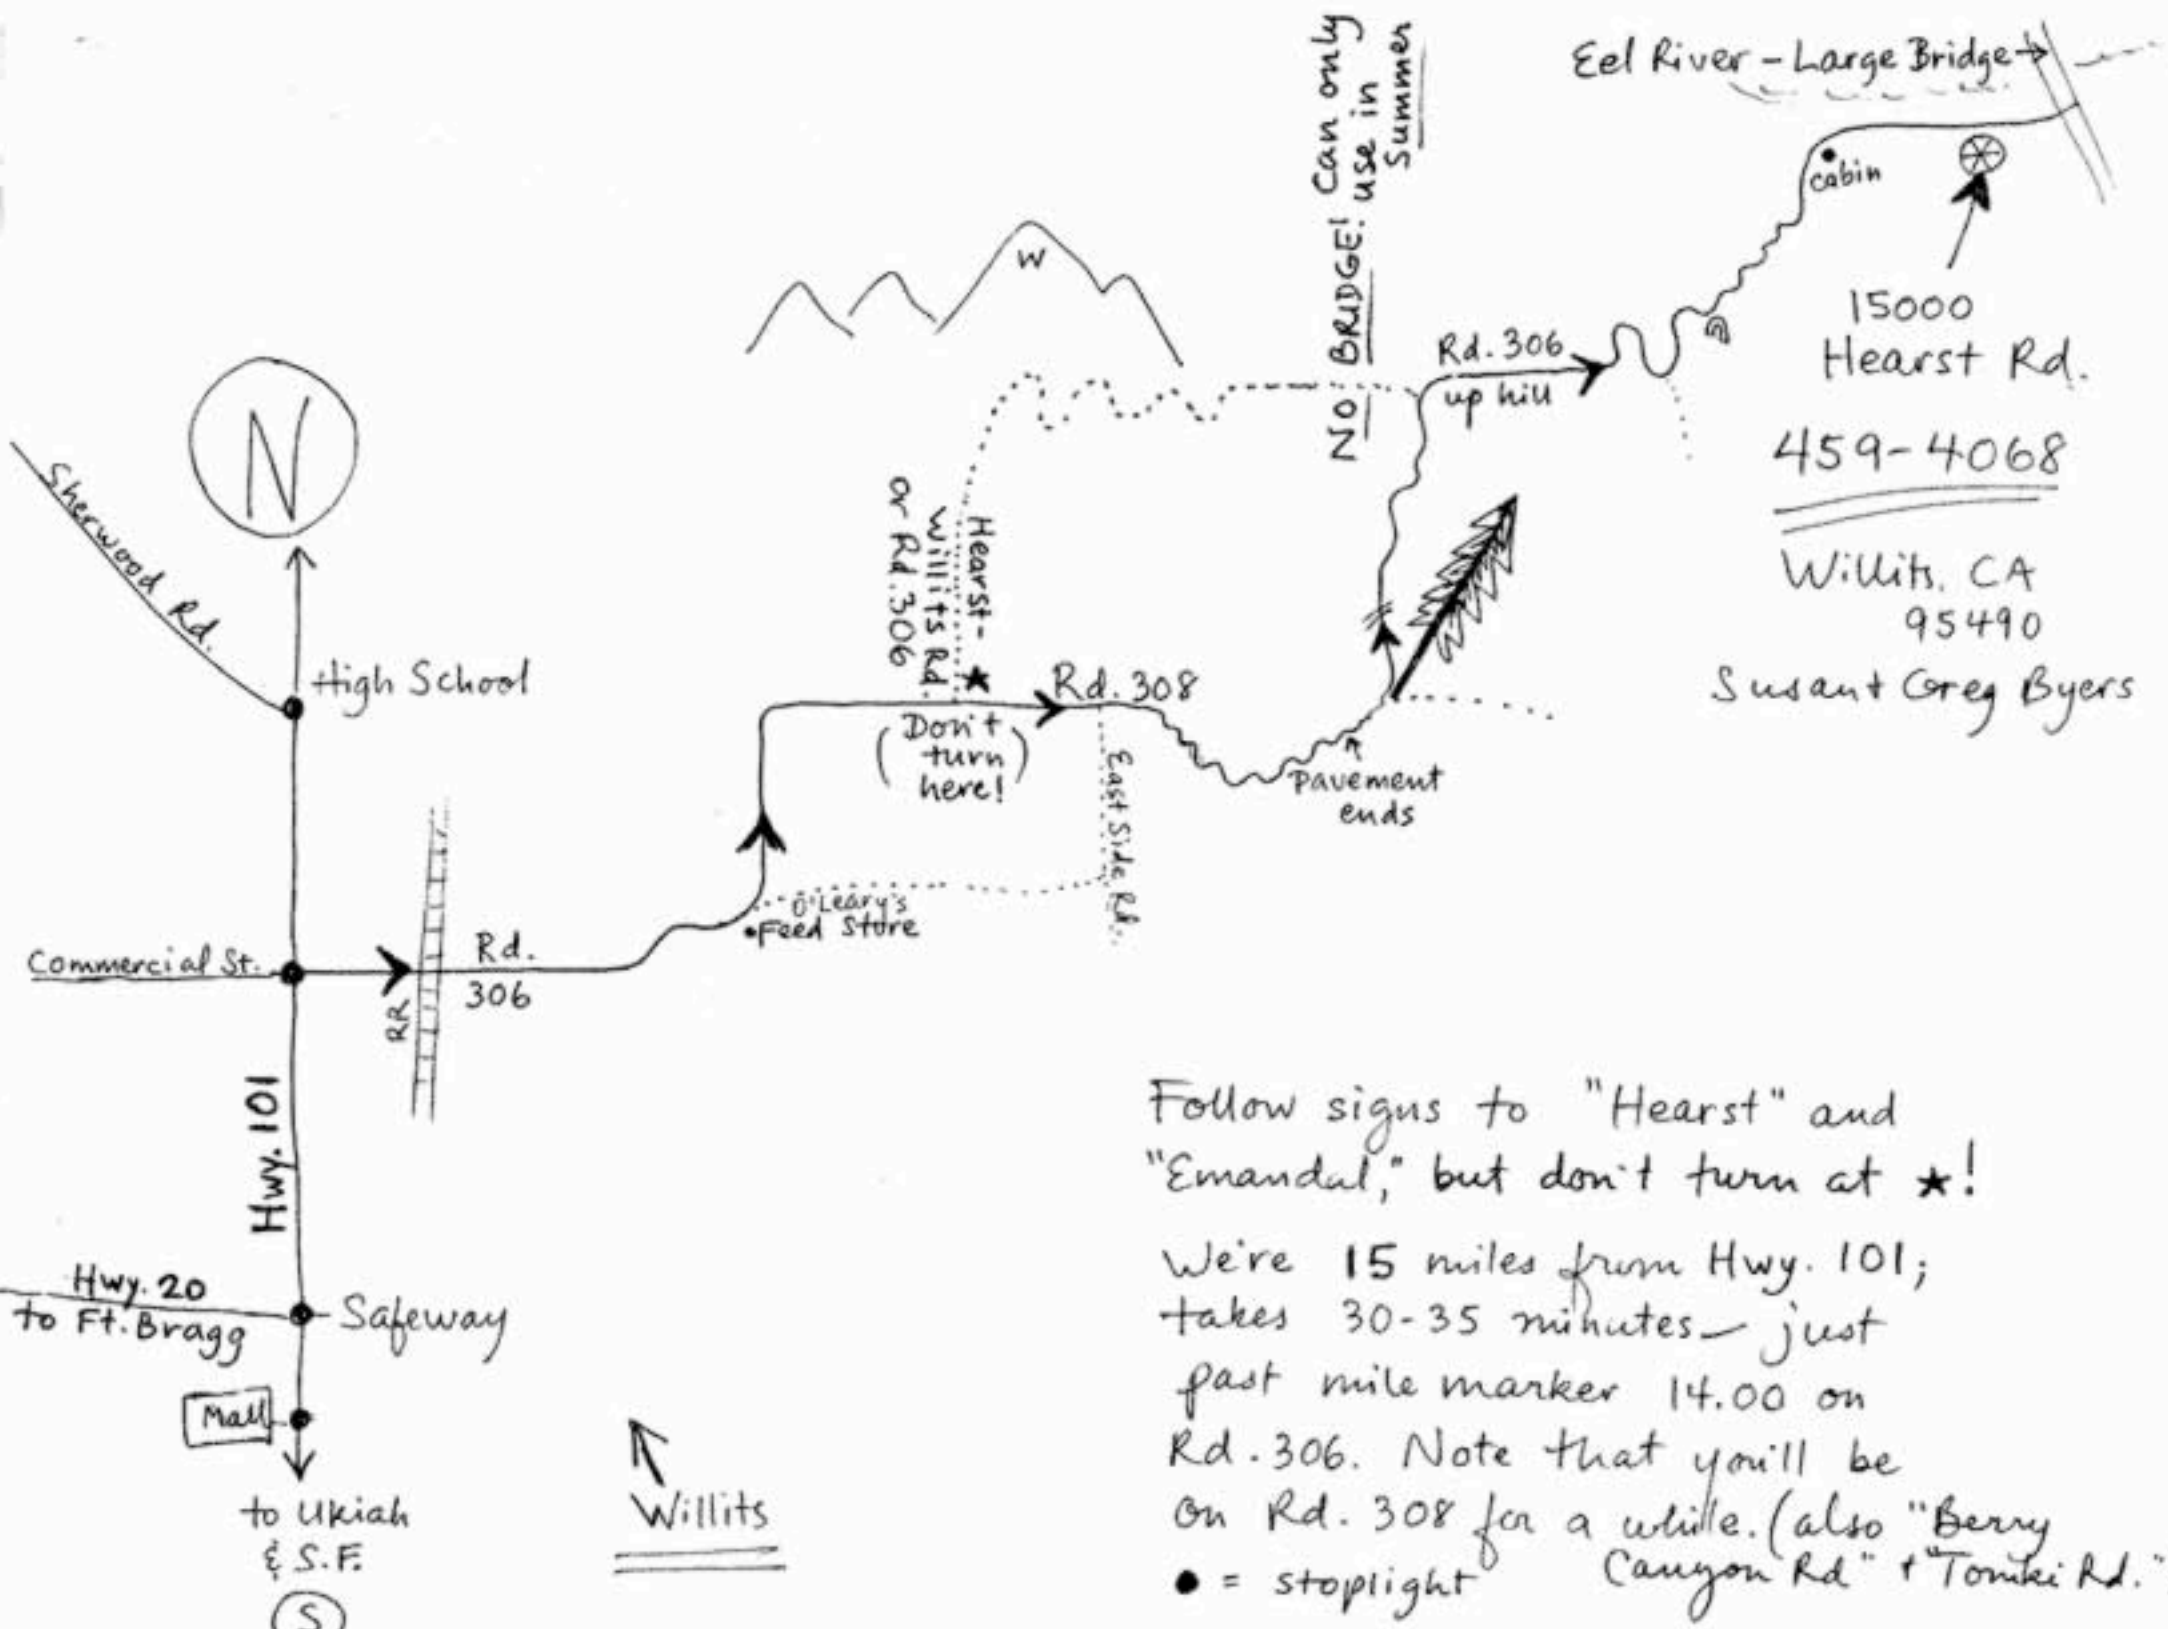 Eel River - Large Bridge
Can only
use in
Summer
NO BRIDGE!
cabin
W
15000
Hearst Rd.
459-4068
Willits, CA
95490
Susan + Greg Byers
Rd. 306
up hill
N
Sherwood Rd.
High School
Hearst-
Willits Rd.
or Rd. 306
★
Rd. 308
(Don't
turn
here!)
Pavement
ends
East Side Rd.
O'Leary's
Feed Store
Commercial St.
RR
Rd.
306
Hwy. 101
Hwy. 20
to Ft. Bragg
Safeway
Mall
to Ukiah
& S.F.
S
Willits
Follow signs to "Hearst" and
"Emandal," but don't turn at ★!
We're 15 miles from Hwy. 101;
takes 30-35 minutes - just
past mile marker 14.00 on
Rd. 306. Note that you'll be
on Rd. 308 for a while. (also "Berry
Canyon Rd" + "Tomki Rd."
● = stoplight